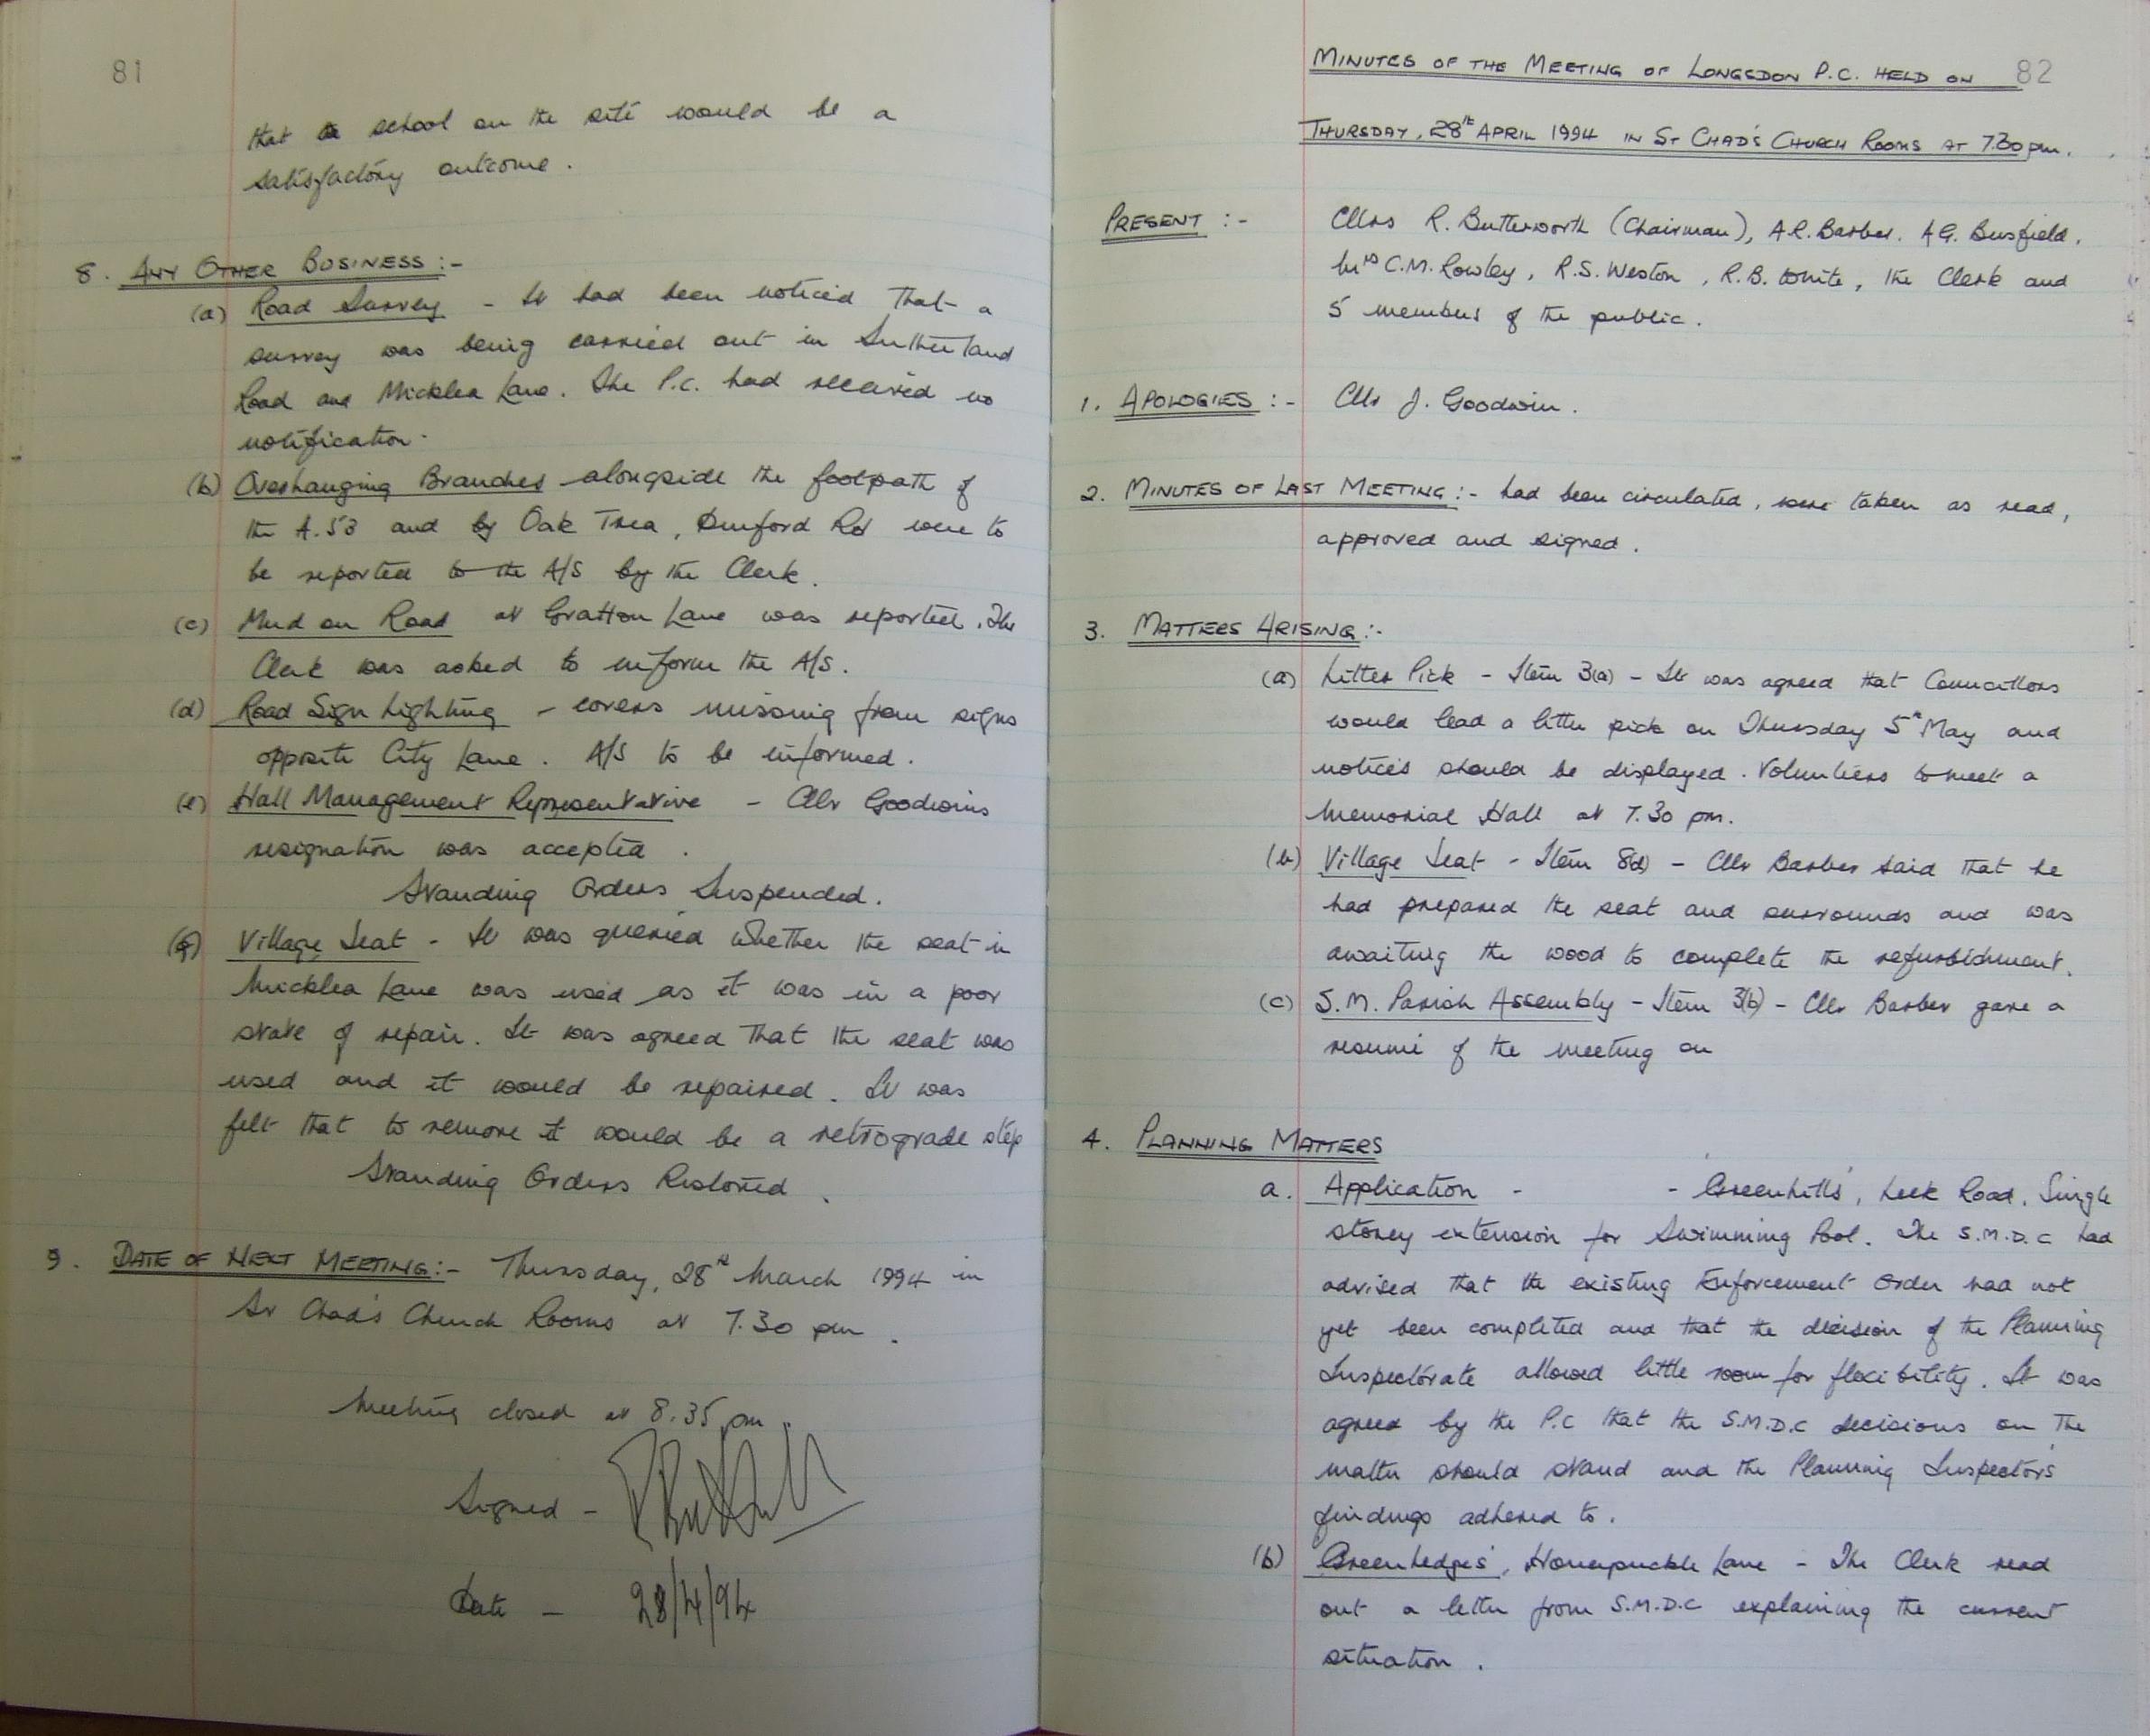 81
that a school on the site would be a
satisfactory outcome.
8. ANY OTHER BUSINESS :-
(a) Road Survey - It had been noticed that a
survey was being carried out in Sutherland
Road and Micklea Lane. The P.C. had received no
notification.
(b) Overhanging Branches alongside the footpath of
the A.53 and by Oak Trea, Dunford Rd were to
be reported to the A/S by the Clerk.
(c) Mud on Road at Gratton Lane was reported. The
Clerk was asked to inform the A/S.
(d) Road Sign Lighting - covers missing from signs
opposite City Lane. A/S to be informed.
(e) Hall Management Representative - Cllr Goodwins
resignation was accepted.
Standing Orders Suspended.
Village Seat - It was queried whether the seat in
Micklea Lane was used as it was in a poor
state of repair. It was agreed that the seat was
used and it would be repaired. It was
felt that to remove it would be a retrograde step
Standing Orders Restored.
9. DATE OF NEXT MEETING :- Thursday, 28th March 1994 in
St Chad's Church Rooms at 7.30 pm.
Meeting closed at 8.35 pm.
Signed -
Date - 28/4/94
MINUTES OF THE MEETING OF LONGSDON P.C. HELD ON 82
THURSDAY, 28th APRIL 1994 IN ST CHAD'S CHURCH ROOMS AT 7.30 pm.
PRESENT :- Cllrs R. Butterworth (Chairman), A.R. Barber. A.G. Busfield,
Mrs C.M. Rowley, R.S. Weston, R.B. White, the Clerk and
5 members of the public.
1. APOLOGIES :- Cllr J. Goodwin.
2. MINUTES OF LAST MEETING :- had been circulated, were taken as read,
approved and signed.
3. MATTERS ARISING :-
(a) Litter Pick - Item 3(a) - It was agreed that Councillors
would lead a litter pick on Thursday 5th May and
notices should be displayed. Volunteers to meet a
Memorial Hall at 7.30 pm.
(b) Village Seat - Item 8(d) - Cllr Barber said that he
had prepared the seat and surrounds and was
awaiting the wood to complete the refurbishment.
(c) S.M. Parish Assembly - Item 3(b) - Cllr Barber gave a
resumé of the meeting on
4. PLANNING MATTERS
a. Application - - 'Greenhills', Leek Road. Single
storey extension for Swimming Pool. The S.M.D.C had
advised that the existing Enforcement Order had not
yet been completed and that the decision of the Planning
Inspectorate allowed little room for flexibility. It was
agreed by the P.C that the S.M.D.C decisions on the
matter should stand and the Planning Inspectors'
findings adhered to.
(b) 'Greenhedges', Honeysuckle Lane - The Clerk read
out a letter from S.M.D.C explaining the current
situation.